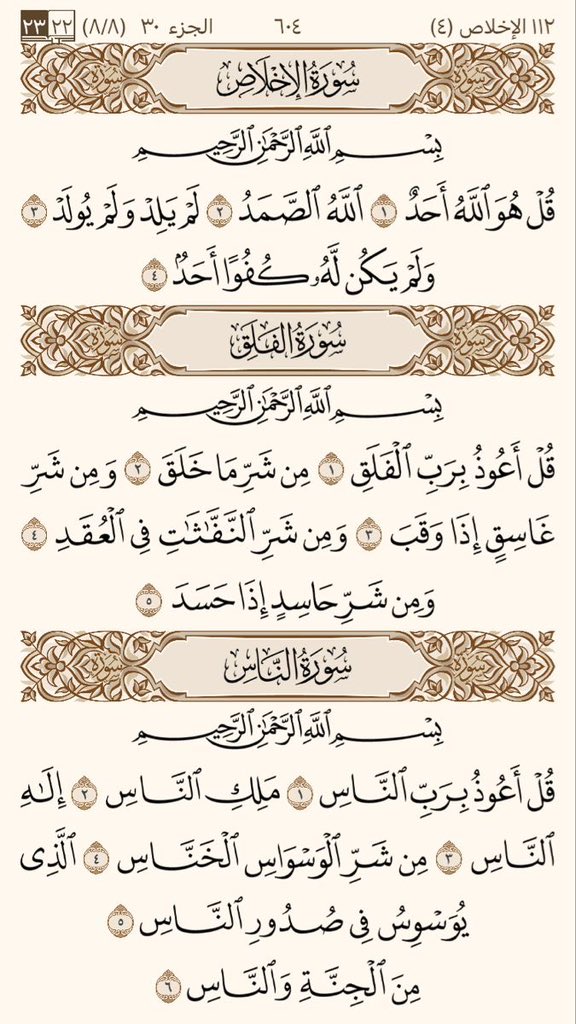 ١١٢ الإخلاص (٤) ٦٠٤ الجزء ٣٠ (٨/٨) ٢٢ ٢٣
سورة سُورَةُ الإِخْلَاصِ سورة
بِسْمِ ٱللَّهِ ٱلرَّحْمَٰنِ ٱلرَّحِيمِ
قُلْ هُوَ ٱللَّهُ أَحَدٌ ١ ٱللَّهُ ٱلصَّمَدُ ٢ لَمْ يَلِدْ وَلَمْ يُولَدْ ٣
وَلَمْ يَكُن لَّهُۥ كُفُوًا أَحَدٌۢ ٤
سورة سُورَةُ الفَلَقِ سورة
بِسْمِ ٱللَّهِ ٱلرَّحْمَٰنِ ٱلرَّحِيمِ
قُلْ أَعُوذُ بِرَبِّ ٱلْفَلَقِ ١ مِن شَرِّ مَا خَلَقَ ٢ وَمِن شَرِّ
غَاسِقٍ إِذَا وَقَبَ ٣ وَمِن شَرِّ ٱلنَّفَّٰثَٰتِ فِى ٱلْعُقَدِ ٤
وَمِن شَرِّ حَاسِدٍ إِذَا حَسَدَ ٥
سورة سُورَةُ النَّاسِ سورة
بِسْمِ ٱللَّهِ ٱلرَّحْمَٰنِ ٱلرَّحِيمِ
قُلْ أَعُوذُ بِرَبِّ ٱلنَّاسِ ١ مَلِكِ ٱلنَّاسِ ٢ إِلَٰهِ
ٱلنَّاسِ ٣ مِن شَرِّ ٱلْوَسْوَاسِ ٱلْخَنَّاسِ ٤ ٱلَّذِى
يُوَسْوِسُ فِى صُدُورِ ٱلنَّاسِ ٥
مِنَ ٱلْجِنَّةِ وَٱلنَّاسِ ٦